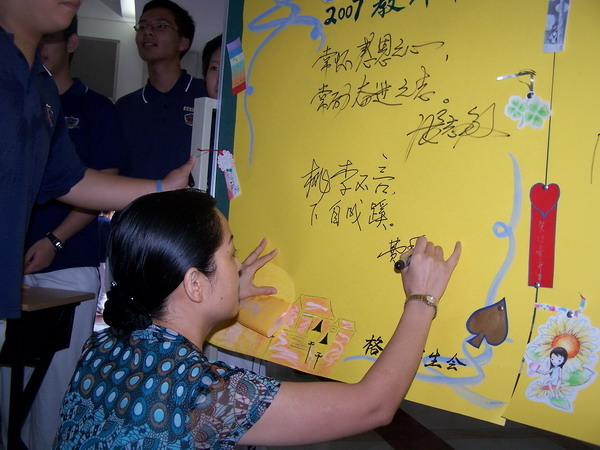 2007 教师
常怀感恩之心，
常励奋进之志。
桃李不言，
下自成蹊。
黄
格 生会